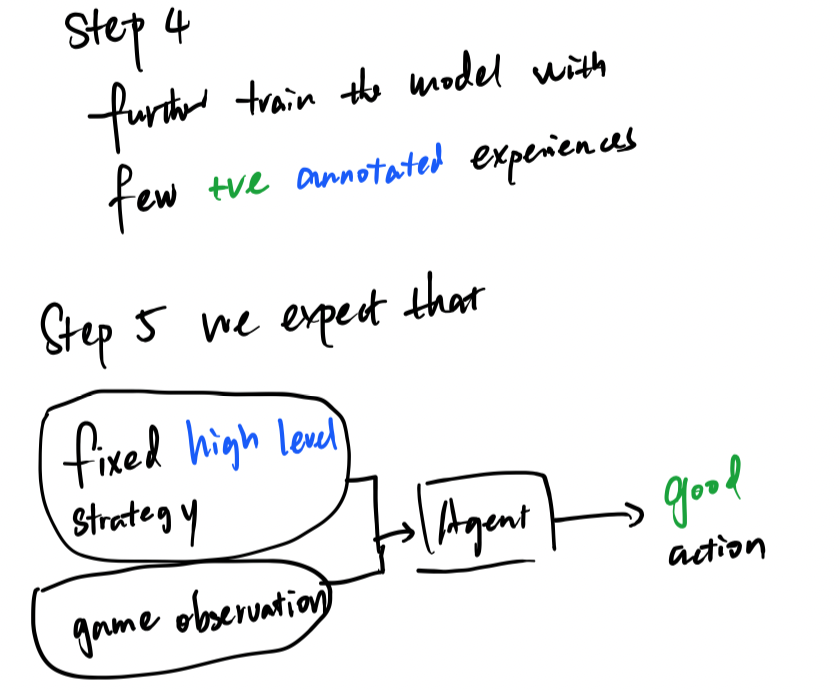 Step 4
further train the model with
few +ve annotated experiences
Step 5 we expect that
fixed high level
strategy
game observation
Agent
good
action